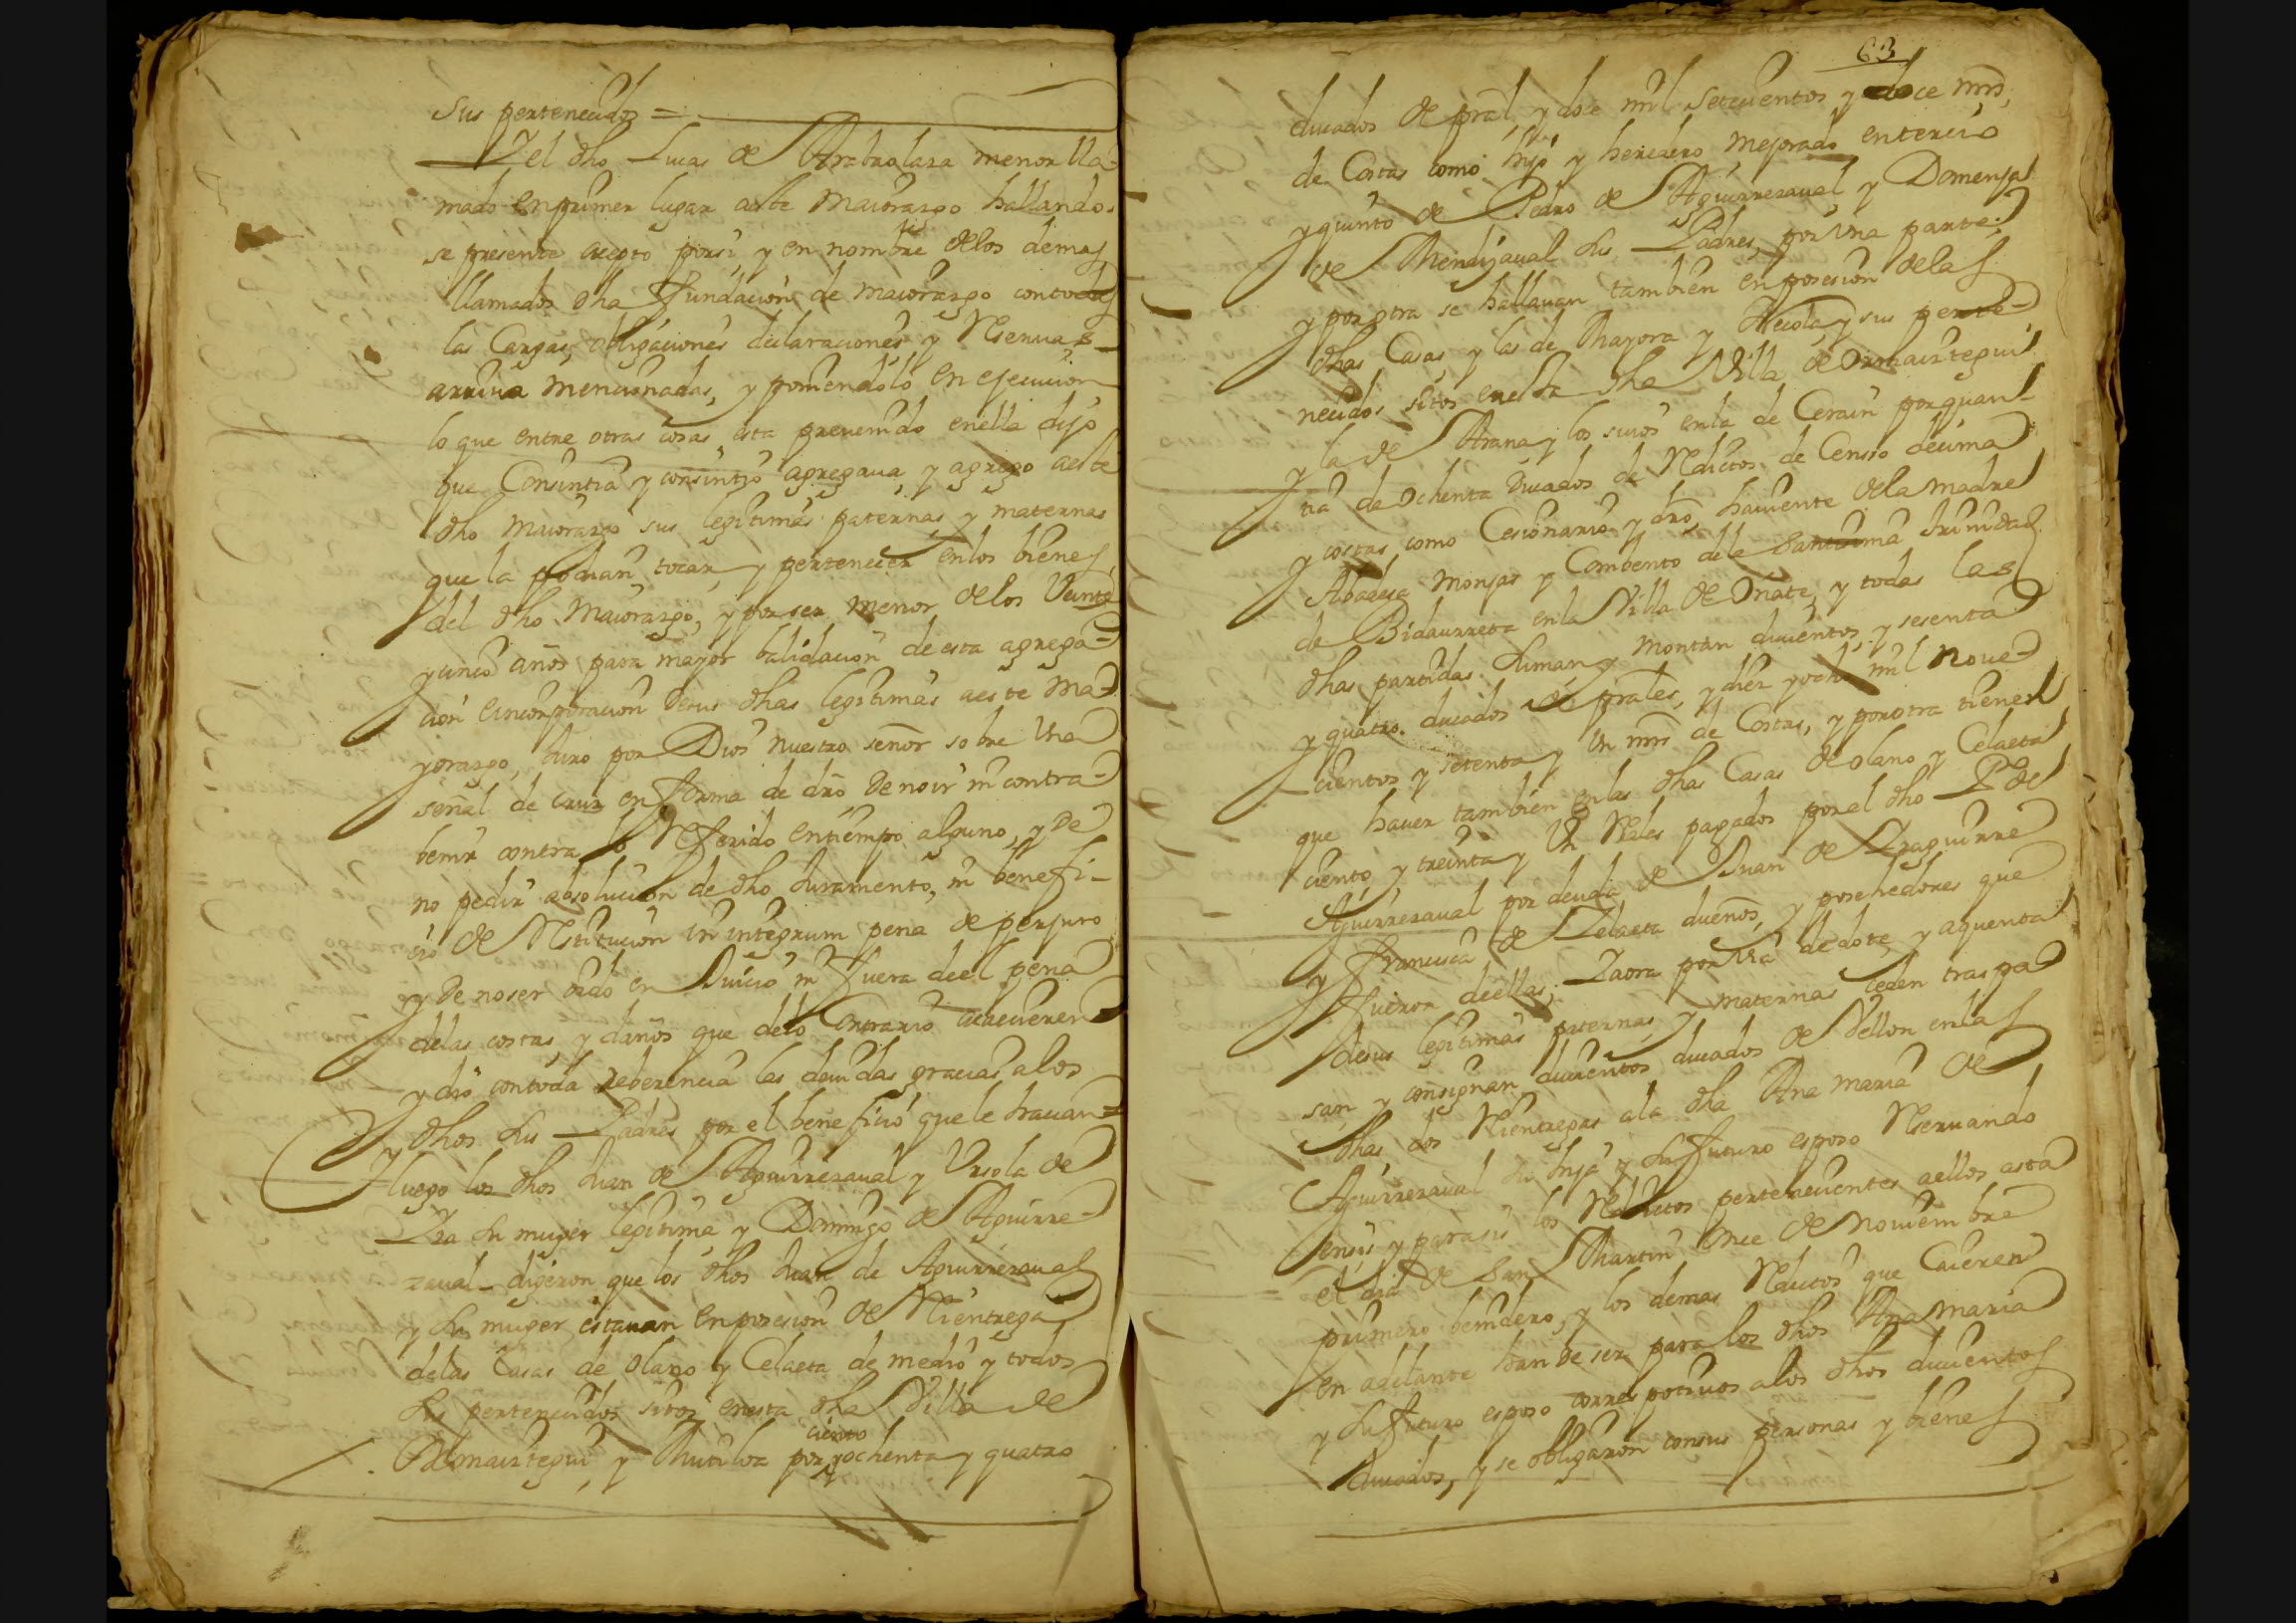 sus pertenecidos =
Y el dho Lucas de Arabaolaza menor lla-
mado en primer lugar aeste maiorazgo hallando-
se presente acepto por si y en nombre delos demas
llamados dha fundacion de maiorazgo con todas
las Cargas, obligaciones declaraciones y Reseruas
arriua mencionadas, y poniendolo en ejecucion
lo que entre otras cosas esta preuenido enella dijo
que Consintia y consintio agregaua y agrego aeste
dho maiorazgo sus legitimas paternas y maternas
que la podian tocar y pertenecer enlos bienes
del dho Maiorazgo, y por ser menor delos Veinte
y cinco años para mayor balidacion de esta agrega-
cion e incorporacion desus dhas legitimas aeste ma-
yorazgo, Juro por Dios nuestro señor sobre Una
señal de cruz en forma de dro De no ir ni contra-
benir contra lo Referido entiempo alguno, y De
no pedir absolucion de dho Juramento, ni benefi-
cio de Restitucion in integrum pena de perjuro
y De no ser oido en Juicio ni fuera de el pena
delas costas y daños que delo Contrario acaecieren
y dio con toda Reberencia las deuidas gracias alos
dhos sus Padres por el beneficio que le hacian =
Y luego los dhos Juan de Aguirrezaual y Ursola de
su muger legitima y Domingo de Aguirre-
zaual digeron que los dhos Juan de Aguirrezaual
y su muger estauan en posesion de Rientrega
delas Casas de olano y Celaeta de medio y todos
sus pertenecidos sitos enesta dha Villa de
Ormaiztegui y Mutiloa por ciento y ochenta y quatro
63
ducados de pral y doce mil Setecientos y doce mrs,
de Costas como hijo y heredero mejorado en tercio
y quinto de Pedro de Aguirrezaual y Domenja
de Mendizaual sus Padres, por Una parte:
y por otra se hallauan tambien en posesion delas
dhas Casas y las de Mayora y y sus perte-
necidos sitos enesta dha Villa de Ormaiztegui
y la de Arana y los suios enla de Cerain por quan-
tia de ochenta ducados de Reditos de Censo decima
y costas como Cesionario y dro hauiente dela madre
Abadesa Monjas y Combento dela Santisima Trinidad
de Bidaurreta enla Villa de Oñate, y todas las
dhas partidas suman y montan ducientos y sesenta
y quatro ducados de prales, y diez y ocho mil Noue-
cientos y setenta y Un mrs de Costas, y por otra tienen
que hauer tambien enlas dhas Casas de olano y Celaeta
ciento y treinta y Un Reales pagados por el dho Po de
Aguirrezaual por deuda de Juan de Yzaguirre
y Francisca de Zelaeta dueños, y poseedores que
fueron deellas; Y aora por Via de dote y aquenta
desus legitimas paternas y maternas ceden traspa-
san y consignan ducientos ducados de Vellon enlas
dhas dos Rientregas ala dha Ana maria de
Aguirrezaual su hija y su futuro esposo Reseruando
ensi y para si los Reditos pertenecientes aellos asta
el dia de San Martin once de Nouiembre
primero benidero, y los demas Reditos que Caieren
en adelante han de ser para los dhos Ana maria
y su futuro esposo correspotiuos alos dhos ducientos
ducados, y se obligaron consus personas y bienes